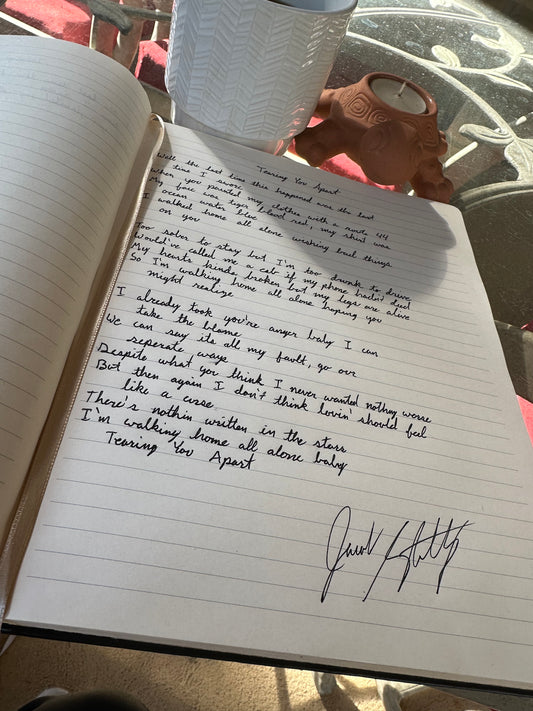 Tearing You Apart
Well the last time this happened was the last
time I swore
When you painted my clothes with a route 44
My face was tiger blood red, my shirt was
ocean water blue
I walked home all alone wishing bad things
on you
Too sober to stay but I'm too drunk to drive
Would've called me a cab if my phone hadn't died
My hearts kinda broken but my legs are alive
So I'm walking home all alone hoping you
might realize
I already took you're anger baby I can
take the blame
We can say its all my fault, go our
seperate ways
Despite what you think I never wanted nothing worse
But then again I don't think lovin' should feel
like a curse
There's nothin written in the stars
I'm walking home all alone baby
Tearing You Apart
Jacob